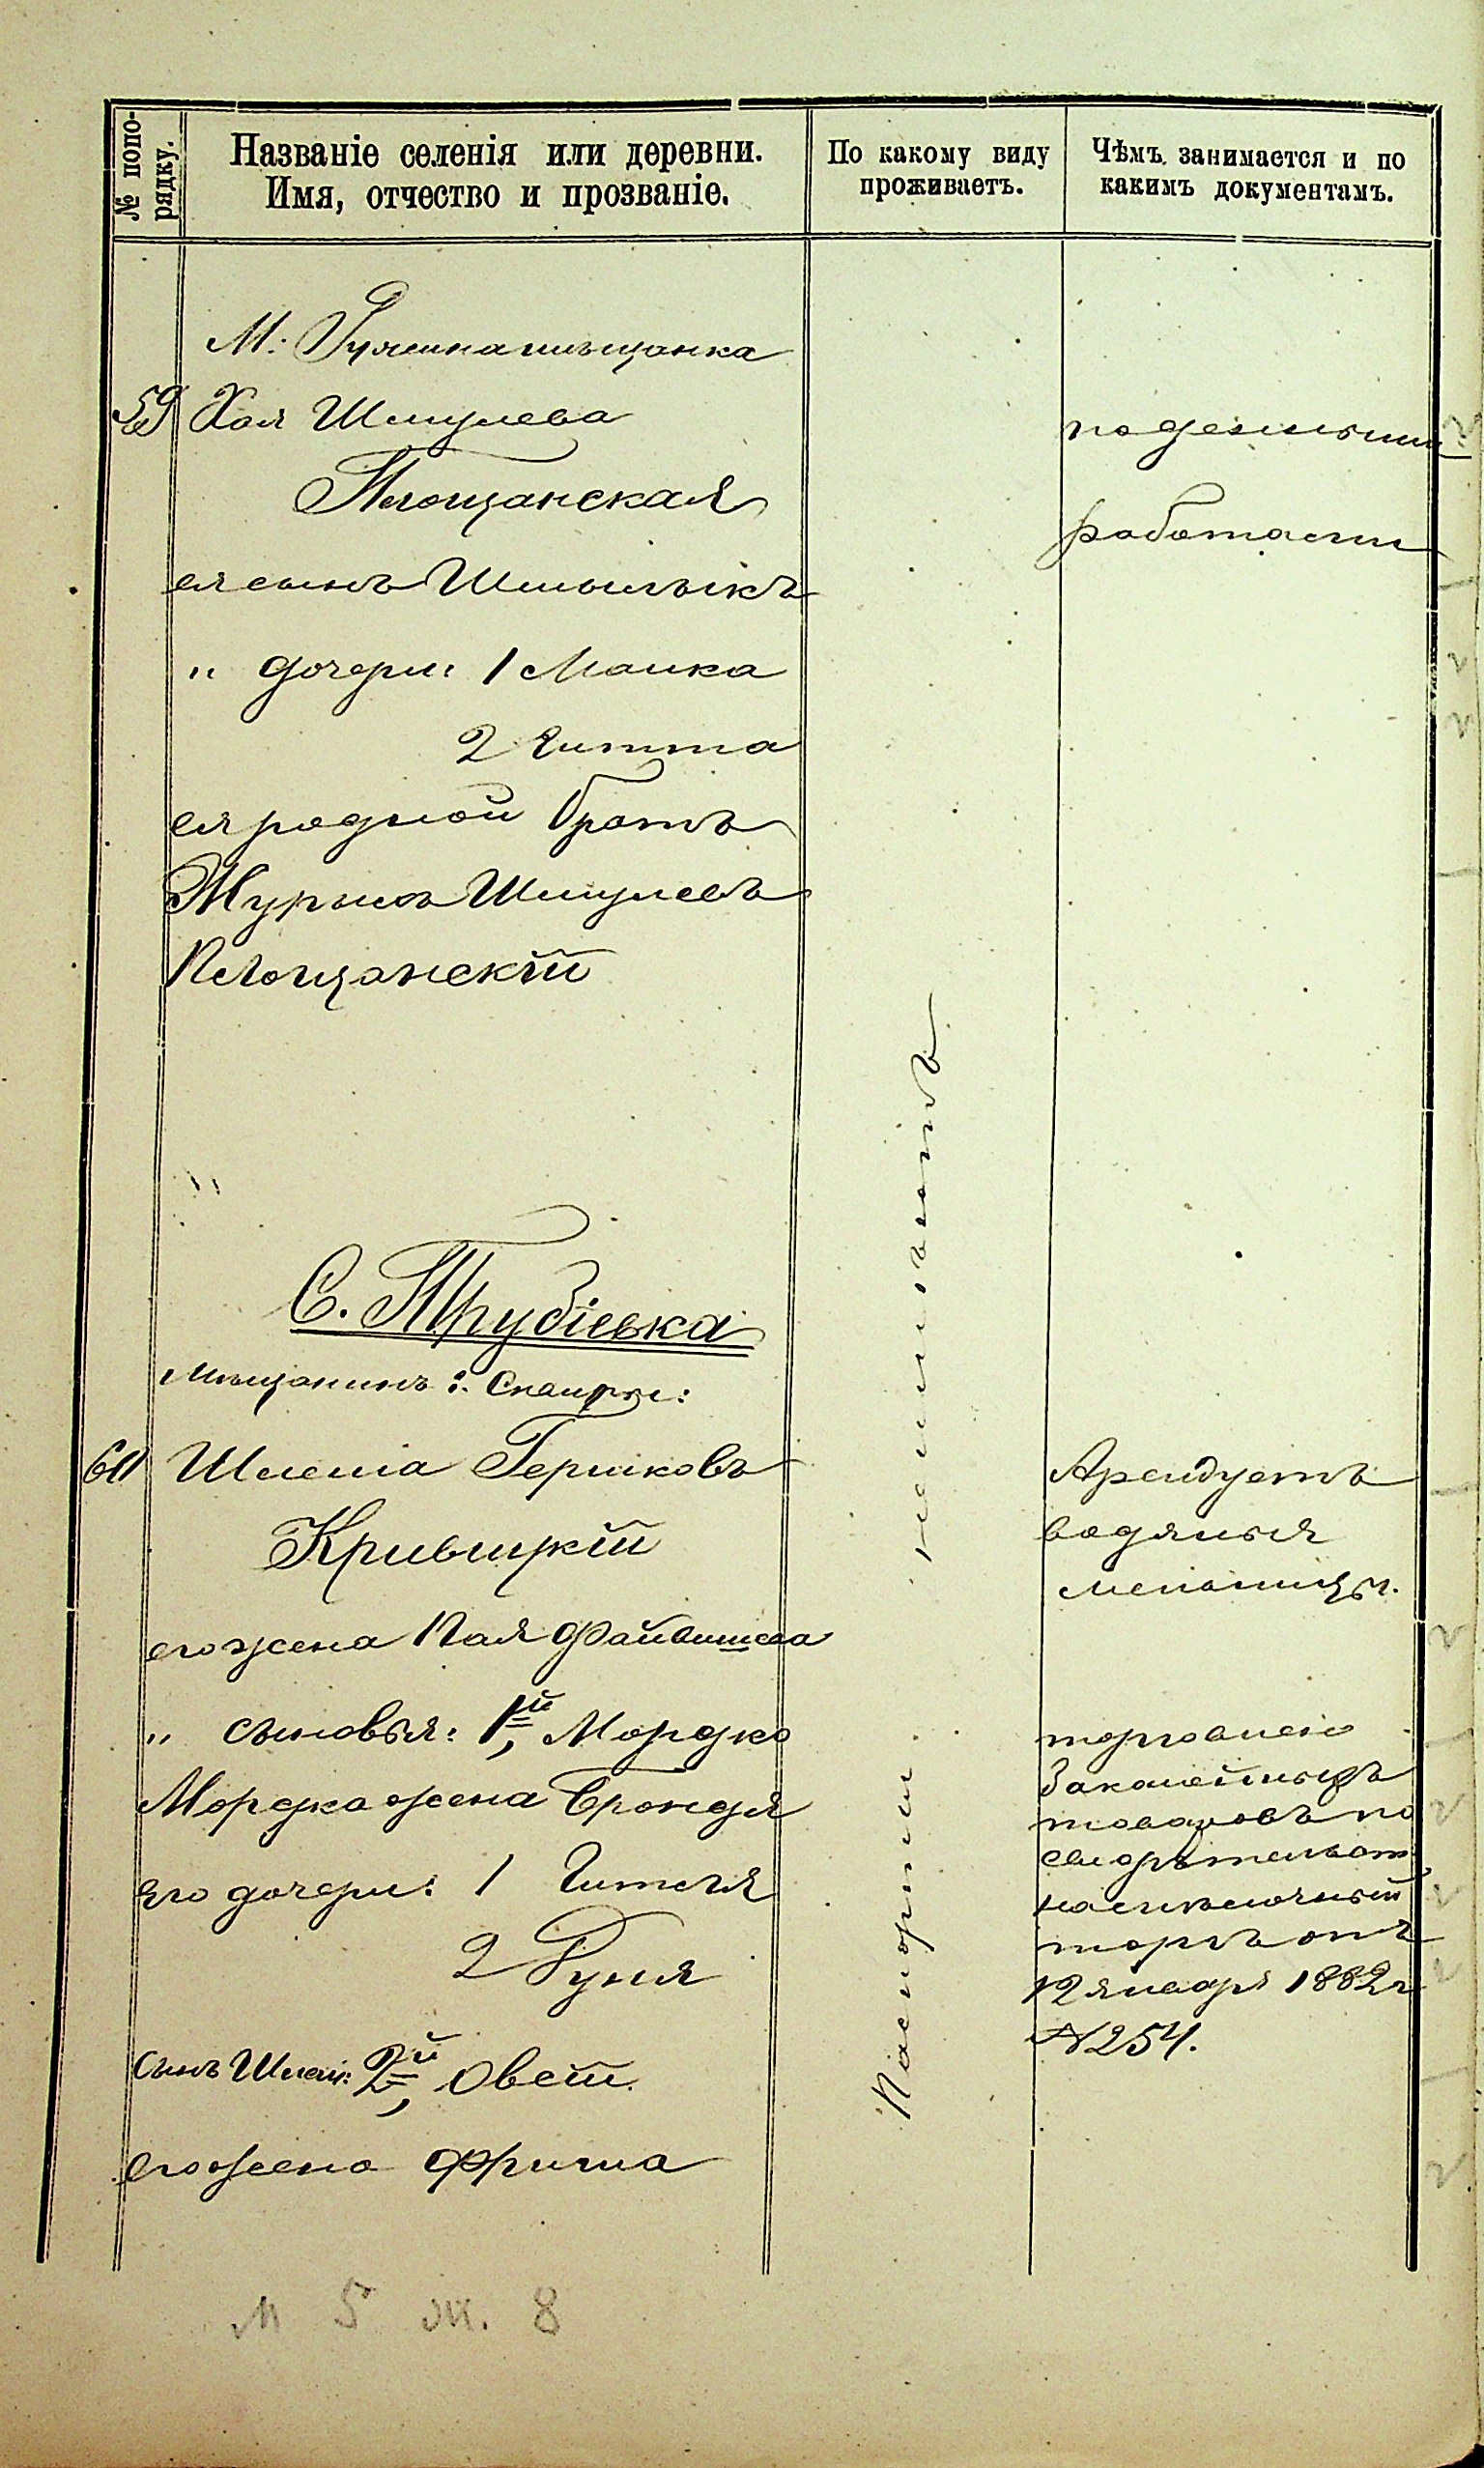 № по по-
рядку.
Названіе селенія или деревни.
Имя, отчество и прозваніе.
По какому виду
проживаетъ.
Чѣмъ занимается и по
какимъ документамъ.
М:
59 Хая Шмулева
Площанская
ея сынъ Шмылыкъ
" дочери: 1 Малка
2 Гитта
ея родной братъ
Шмулевъ
Площанскій
поденными
работами
С. Трубіевка
мѣщанинъ:
60 Шлема Гершковъ
Кривицкій
его жена Пая Файвишева
" сыновья: 1й, Мордко
Мордка жена Брондля
Его дочери: 1 Гителя
2 Руня
сынъ Шлем: 2й, Овсей
его жена Фрима
Паспорта неимѣютъ
Арендуетъ
водяныя
мельницы.
торговлею
товаровъ по
свидѣтельст:
на мѣлочный
торгъ отъ
12 января 1882 г
№ 254.
м 5 ж. 8